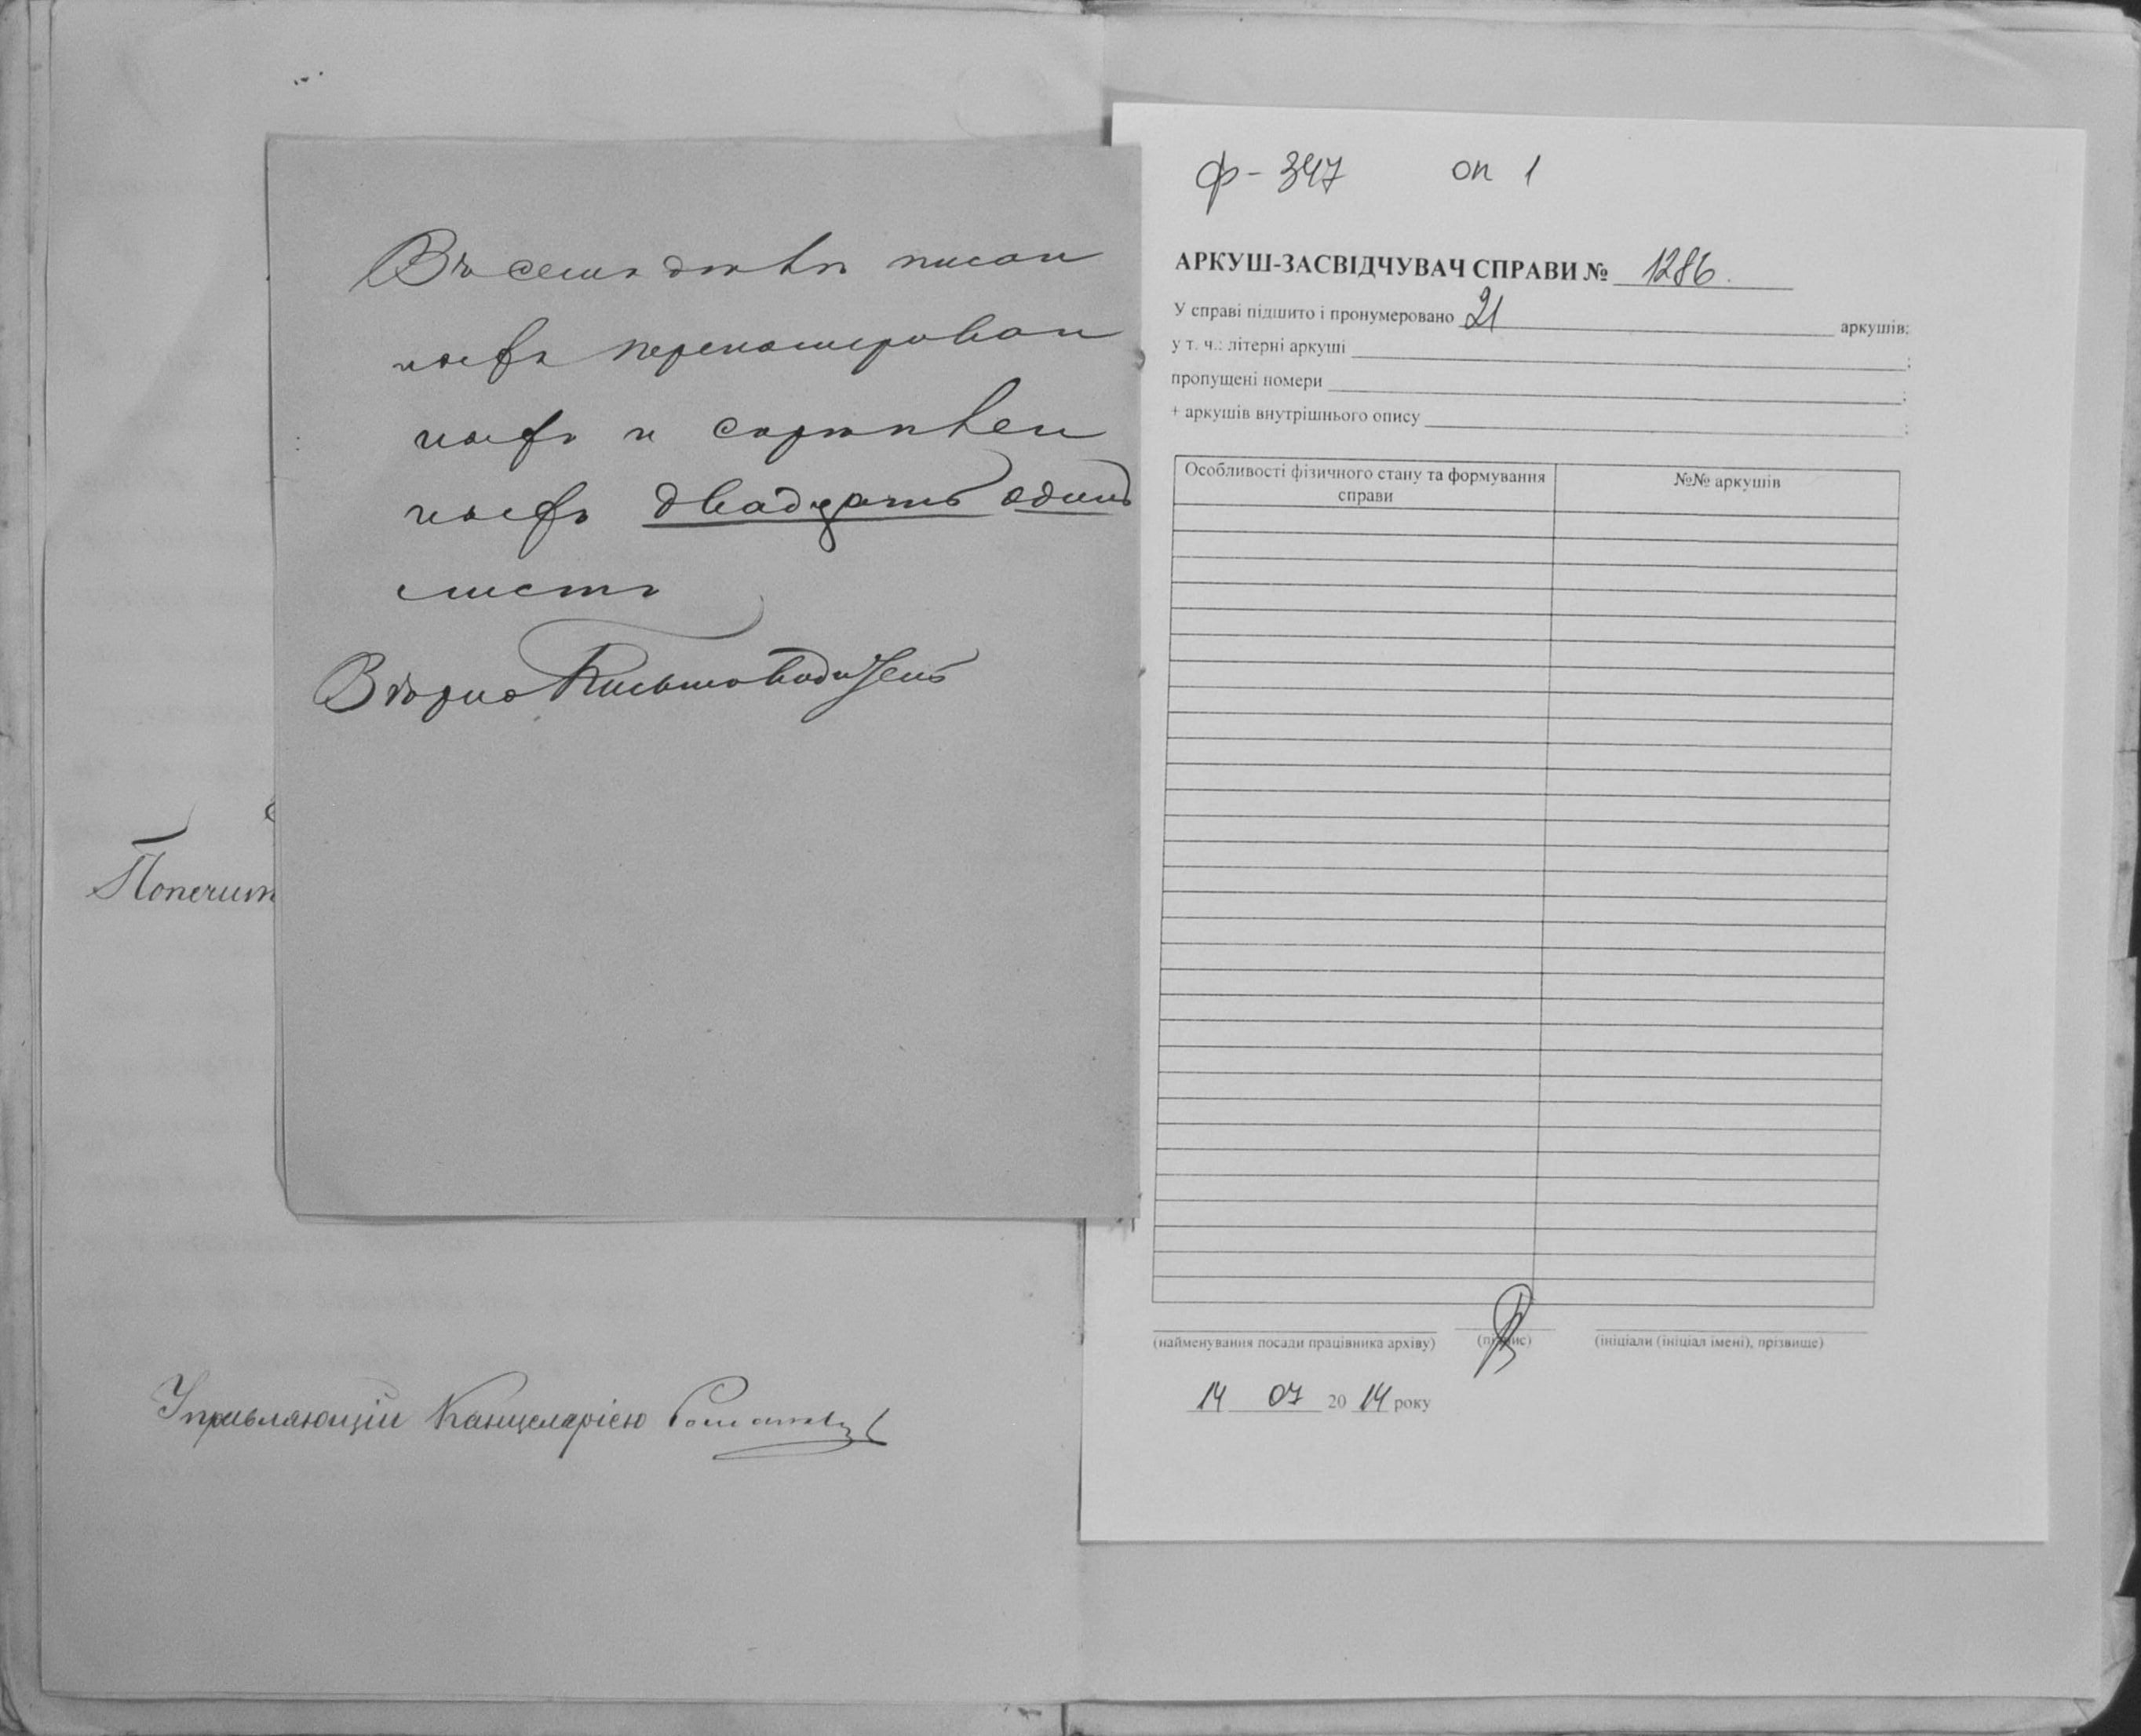 Въ семъ дѣлѣ писан
ныхъ перенумерован
ныхъ и скрѣплен
ныхъ двадцать одинъ
листъ
Вѣрно Письмоводитель
Попечит
Управляющій Канцеляріею
ф - 347 оп 1
АРКУШ-ЗАСВІДЧУВАЧ СПРАВИ № 1286.
У справі підшито і пронумеровано 21 аркушів;
у т. ч.: літерні аркуші ;
пропущені номери ;
+ аркушів внутрішнього опису ;
Особливості фізичного стану та формування №№ аркушів
справи
(найменування посади працівника архіву) (підпис) (ініціали (ініціал імені), прізвище)
14 07 20 14 року